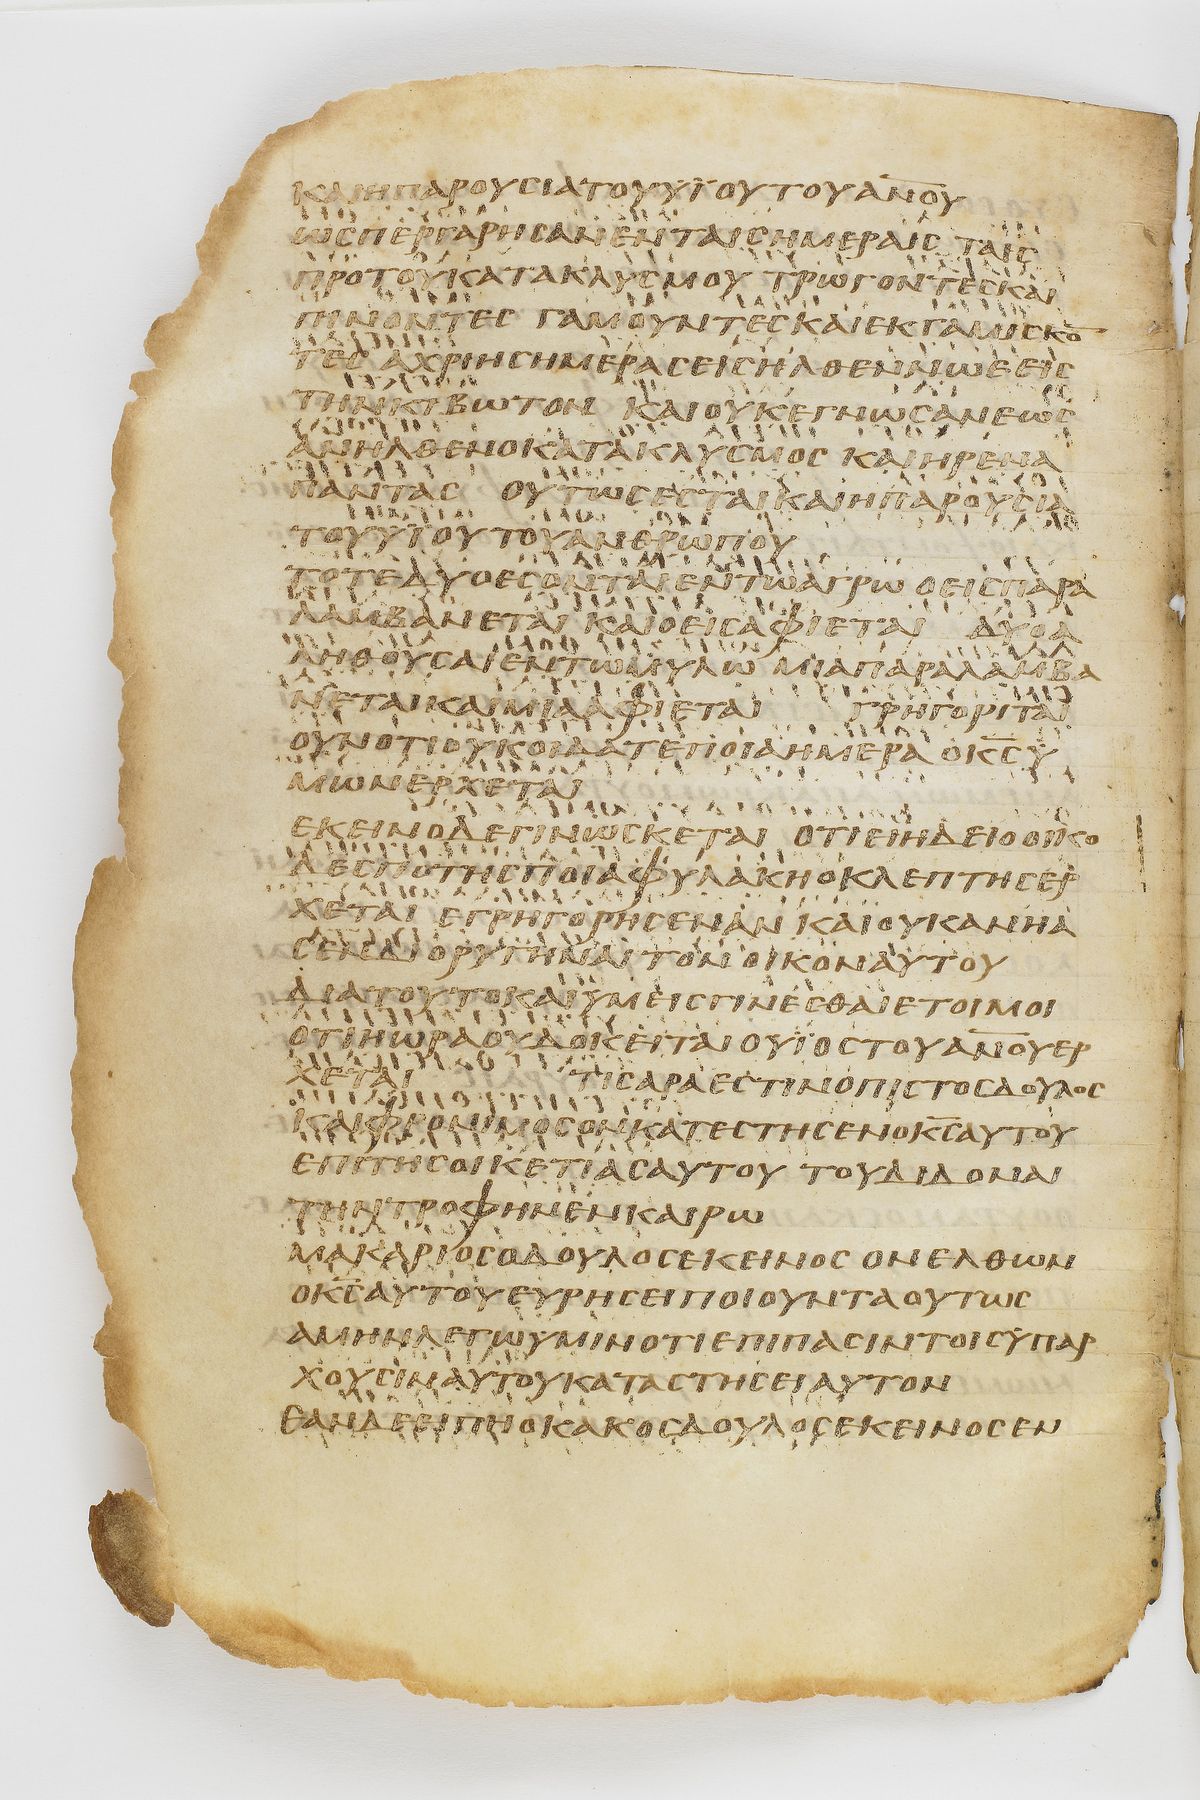 ΚΑΙΗΠΑΡΟΥΣΙΑΤΟΥΥΪΟΥΤΟΥΑΝ̅Ο̅Υ̅
ΩΣΠΕΡΓΑΡΗΣΑΝΕΝΤΑΙΣΗΜΕΡΑΙΣ ΤΑΙΣ
ΠΡΟΤΟΥΚΑΤΑΚΛΥΣΜΟΥ ΤΡΩΓΟΝΤΕΣΚΑΙ
ΠΙΝΟΝΤΕΣ ΓΑΜΟΥΝΤΕΣΚΑΙΕΚΓΑΜΙΣΚΟ̅
ΤΕΣ ΑΧΡΙΗΣΗΜΕΡΑΣΕΙΣΗΛΘΕΝΝΩΕ ΕΙΣ
ΤΗΝΚΙΒΩΤΟΝ ΚΑΙΟΥΚΕΓΝΩΣΑΝΕΩΣ
ΑΝΗΛΘΕΝΟΚΑΤΑΚΛΥΣΜΟΣ ΚΑΙΗΡΕΝΑ
ΠΑΝΤΑΣ ΟΥΤΩΣΕΣΤΑΙΚΑΙΗΠΑΡΟΥΣΙΑ
ΤΟΥΥΪΟΥΤΟΥΑΝΘΡΩΠΟΥ
ΤΟΤΕΔΥΟΕΣΟΝΤΑΙΕΝΤΩΑΓΡΩ ΟΕΙΣΠΑΡΑ
ΛΑΜΒΑΝΕΤΑΙ ΚΑΙΟΕΙΣΑΦΙΕΤΑΙ ΔΥΟΑ
ΛΗΘΟΥΣΑΙΕΝΤΩΜΥΛΩ ΜΙΑΠΑΡΑΛΑΜΒΑ
ΝΕΤΑΙΚΑΙΜΙΑΑΦΙΕΤΑΙ ΓΡΗΓΟΡΙΤΑΙ
ΟΥΝΟΤΙΟΥΚΟΙΔΑΤΕΠΟΙΑΗΜΕΡΑ ΟΚ̅Σ̅Υ
ΜΩΝΕΡΧΕΤΑΙ
ΕΚΕΙΝΟΔΕΓΙΝΩΣΚΕΤΑΙ ΟΤΙΕΙΗΔΕΙΟΟΙΚΟ
ΔΕΣΠΟΤΗΣΠΟΙΑΦΥΛΑΚΗΟΚΛΕΠΤΗΣΕΡ
ΧΕΤΑΙ ΕΓΡΗΓΟΡΗΣΕΝΑΝ ΚΑΙΟΥΚΑΝΗΑ
ΣΕΝΔΙΟΡΥΓΗΝΑΙ ΤΟΝΟΙΚΟΝΑΥΤΟΥ
ΔΙΑΤΟΥΤΟΚΑΙΥΜΕΙΣΓΙΝΕΣΘΑΙΕΤΟΙΜΟΙ
ΟΤΙΗΩΡΑΟΥΔΟΚΕΙΤΑΙ ΟΥΪΟΣΤΟΥΑΝ̅Ο̅Υ̅ΕΡ
ΧΕΤΑΙ ΤΙΣΑΡΑΕΣΤΙΝΟΠΙΣΤΟΣΔΟΥΛΟΣ
ΚΑΙΦΡΟΝΙΜΟΣΟΝΚΑΤΕΣΤΗΣΕΝΟΚ̅Σ̅ΑΥΤΟΥ
ΕΠΙΤΗΣΟΙΚΕΤΙΑΣΑΥΤΟΥ ΤΟΥΔΙΔΟΝΑΙ
ΤΗΝΤΡΟΦΗΝΕΝΚΑΙΡΩ
ΜΑΚΑΡΙΟΣΟΔΟΥΛΟΣΕΚΕΙΝΟΣ ΟΝΕΛΘΩΝ
ΟΚ̅Σ̅ΑΥΤΟΥΕΥΡΗΣΕΙΠΟΙΟΥΝΤΑΟΥΤΩΣ
ΑΜΗΝΛΕΓΩΥΜΙΝΟΤΙΕΠΙΠΑΣΙΝΤΟΙΣΥΠΑΡ
ΧΟΥΣΙΝΑΥΤΟΥΚΑΤΑΣΤΗΣΕΙΑΥΤΟΝ
ΕΑΝΔΕΕΙΠΗΟΚΑΚΟΣΔΟΥΛΟΣΕΚΕΙΝΟΣΕΝ